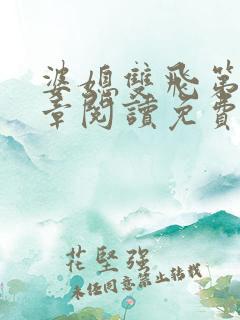 婆媳雙飛第
章閱讀免費
花堅強
未经同意禁止转载